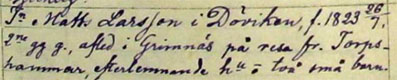 Tn Matts Larsson i Döviken, f. 1823 26/7.
2ne gg g., afled i Grimnäs på resa fr. Torps-
hammar, efterlemnande hu = två små barn.